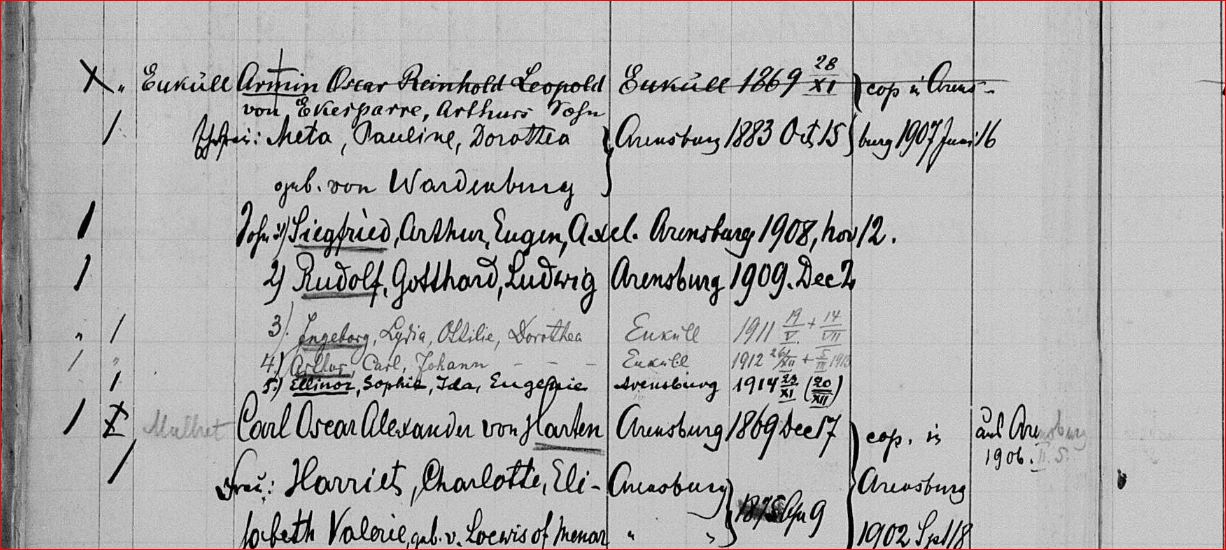 X „ Euküll Armin Oscar Reinhold Leopold Euküll 1869 28/XI cop in Arens-
von Ekesparre, Arthurs Sohn
/ Frau: Meta, Pauline, Dorothea Arensburg 1883 Oct 15 burg 1907 Juni 16
geb. von Wardenburg
/ Sohn 1) Siegfried, Arthur, Eugen, Axel. Arensburg 1908, nov 12.
/ 2) Rudolf, Gotthard, Ludwig Arensburg 1909. Dec 2
„ / 3) Ingeborg, Lydia, Ottilie, Dorothea Euküll 1911 19/V + 14/VII
/ „ 4) Arthur, Carl, Johann - - Euküll 1912
/ 5.) Ellinor, Sophie, Ida, Eugenie Arensburg 1914 22/XI (20/XII)
/ Mullut Carl Oscar Alexander von Harten Arensburg 1869 Dec 17 cop. in aus Arensburg
1906. II. 5.
/ Frau: Harriet, Charlotte, Eli- Arensburg 1875 Apr 9 Arensburg
sabeth Valerie, geb. v. Loewis of Menar „ „ 1902 Sept 18